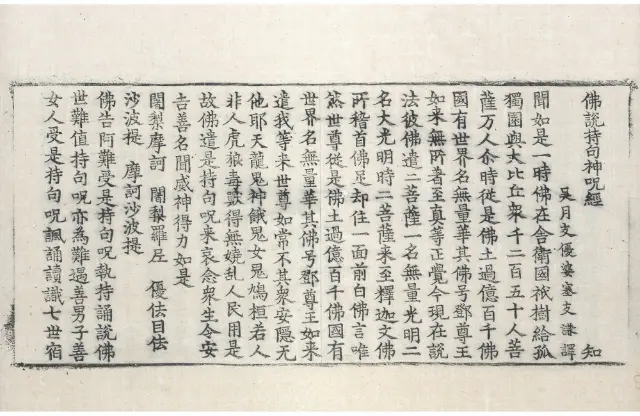 佛說持句神呪經 知
吳月支優婆塞支謙譯
聞如是一時佛在舍衛國祇樹給孤
獨園與大比丘衆千二百五十人菩
薩万人尒時從是佛土過億百千佛
國有世界名無量華其佛号鄧尊王
如來無所著至真等正覺今現在說
法彼佛遣二菩薩一名無量光明二
名大光明時二菩薩来至釋迦文佛
所稽首佛足却住一面前白佛言唯
然世尊從是佛土過億百千佛國有
世界名無量華其佛号鄧尊王如来
遣我等来世尊如常不其衆安隱无
他耶天龍鬼神餓鬼女鬼鳩桓若人
非人虎狼毒獸得無嬈乱人民用是
故佛遣是持句呪来哀念衆生令安
吉善名聞威神得力如是
闍梨摩訶 闍梨羅尼 優佉目佉
沙波提 摩訶沙波提
佛告阿難受是持句呪執持誦說佛
世難值持句呪亦為難遇善男子善
女人受是持句呪諷誦讀識七世宿